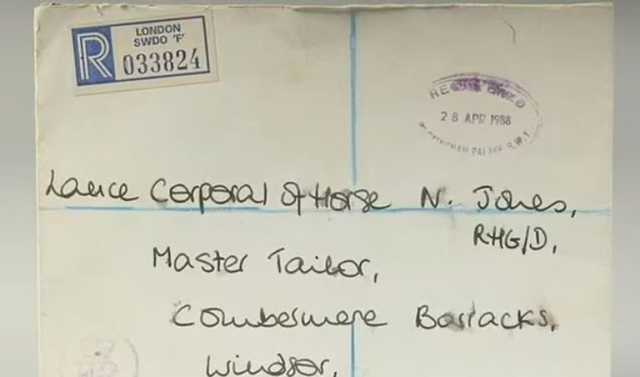 LONDON
SWDO 'F'
R
033824
REGISTERED
28 APR 1988
BUCKINGHAM PALACE S.W.1
Lance Corporal of Horse N. Jones,
RHG/D,
Master Tailor,
Combermere Barracks,
Windsor,